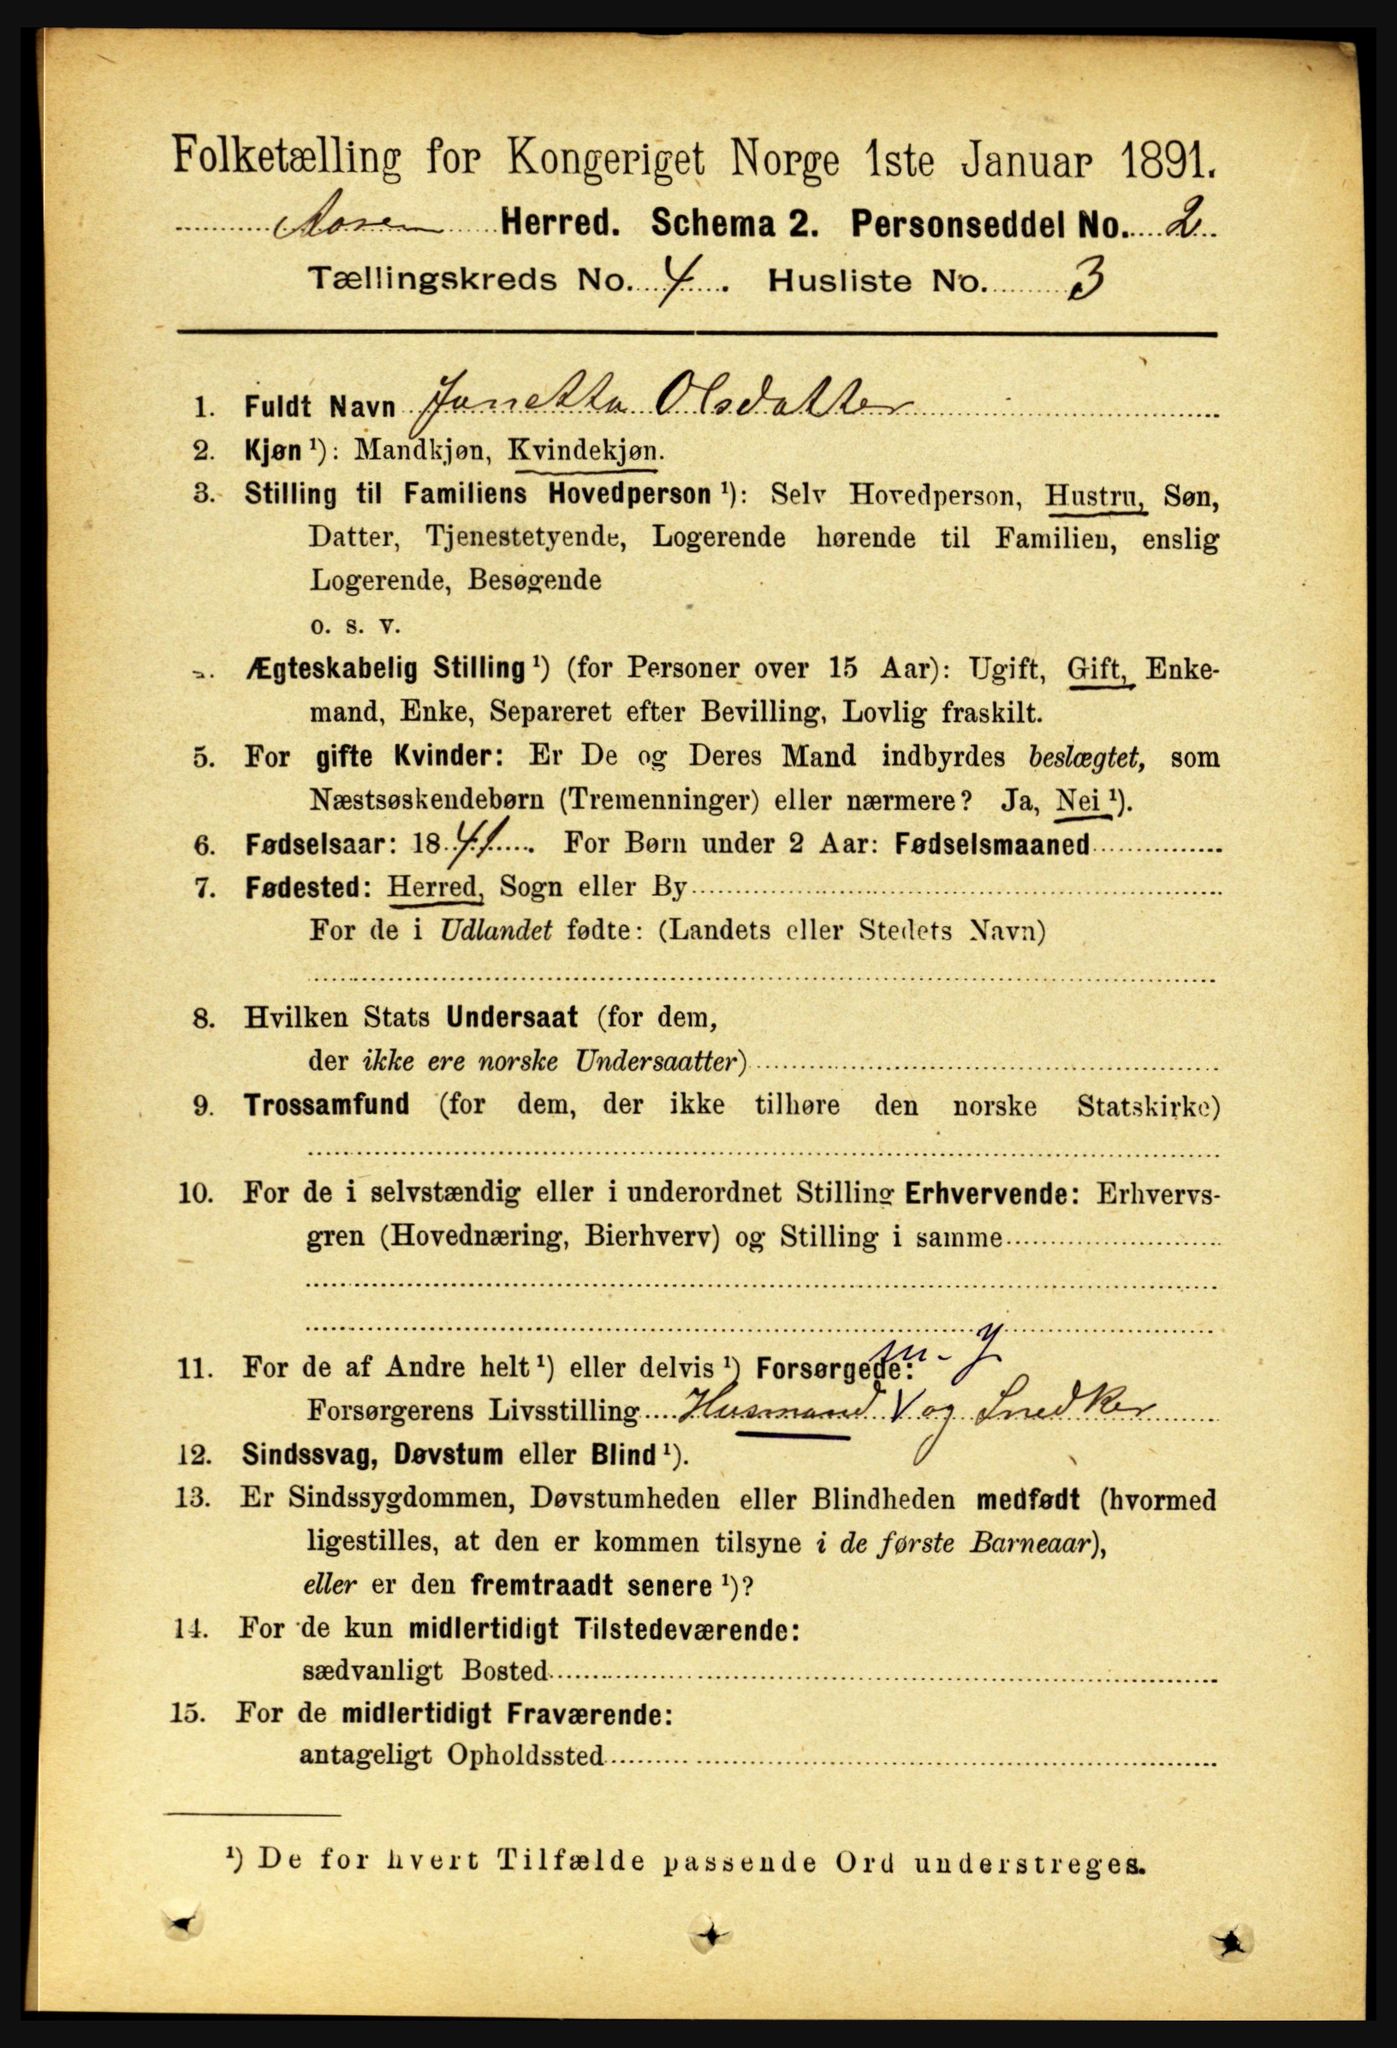 Folketælling for Kongeriget Norge 1ste Januar 1891.
Herred. Schema 2. Personseddel No. 2
Tællingskreds No. 4. Husliste No. 3
1. Fuldt Navn Janetta Olsdatter
2. Kjøn ¹): Mandkjøn, Kvindekjøn.
3. Stilling til Familiens Hovedperson ¹): Selv Hovedperson, Hustru, Søn,
Datter, Tjenestetyende, Logerende hørende til Familien, enslig
Logerende, Besøgende
o. s. v.
Ægteskabelig Stilling ¹) (for Personer over 15 Aar): Ugift, Gift, Enke-
mand, Enke, Separeret efter Bevilling, Lovlig fraskilt.
5. For gifte Kvinder: Er De og Deres Mand indbyrdes beslægtet, som
Næstsøskendebørn (Tremenninger) eller nærmere? Ja, Nei ¹).
6. Fødselsaar: 1841. For Børn under 2 Aar: Fødselsmaaned
7. Fødested: Herred, Sogn eller By
For de i Udlandet fødte: (Landets eller Stedets Navn)
8. Hvilken Stats Undersaat (for dem,
der ikke ere norske Undersaatter)
9. Trossamfund (for dem, der ikke tilhøre den norske Statskirke)
10. For de i selvstændig eller i underordnet Stilling Erhvervende: Erhvervs-
gren (Hovednæring, Bierhverv) og Stilling i samme
11. For de af Andre helt ¹) eller delvis ¹) Forsørgede:
Forsørgerens Livsstilling Husmand og Snedker
12. Sindssvag, Døvstum eller Blind ¹).
13. Er Sindssygdommen, Døvstumheden eller Blindheden medfødt (hvormed
ligestilles, at den er kommen tilsyne i de første Barneaar),
eller er den fremtraadt senere ¹)?
14. For de kun midlertidigt Tilstedeværende:
sædvanligt Bosted
15. For de midlertidigt Fraværende:
antageligt Opholdssted
¹) De for hvert Tilfælde passende Ord understreges.